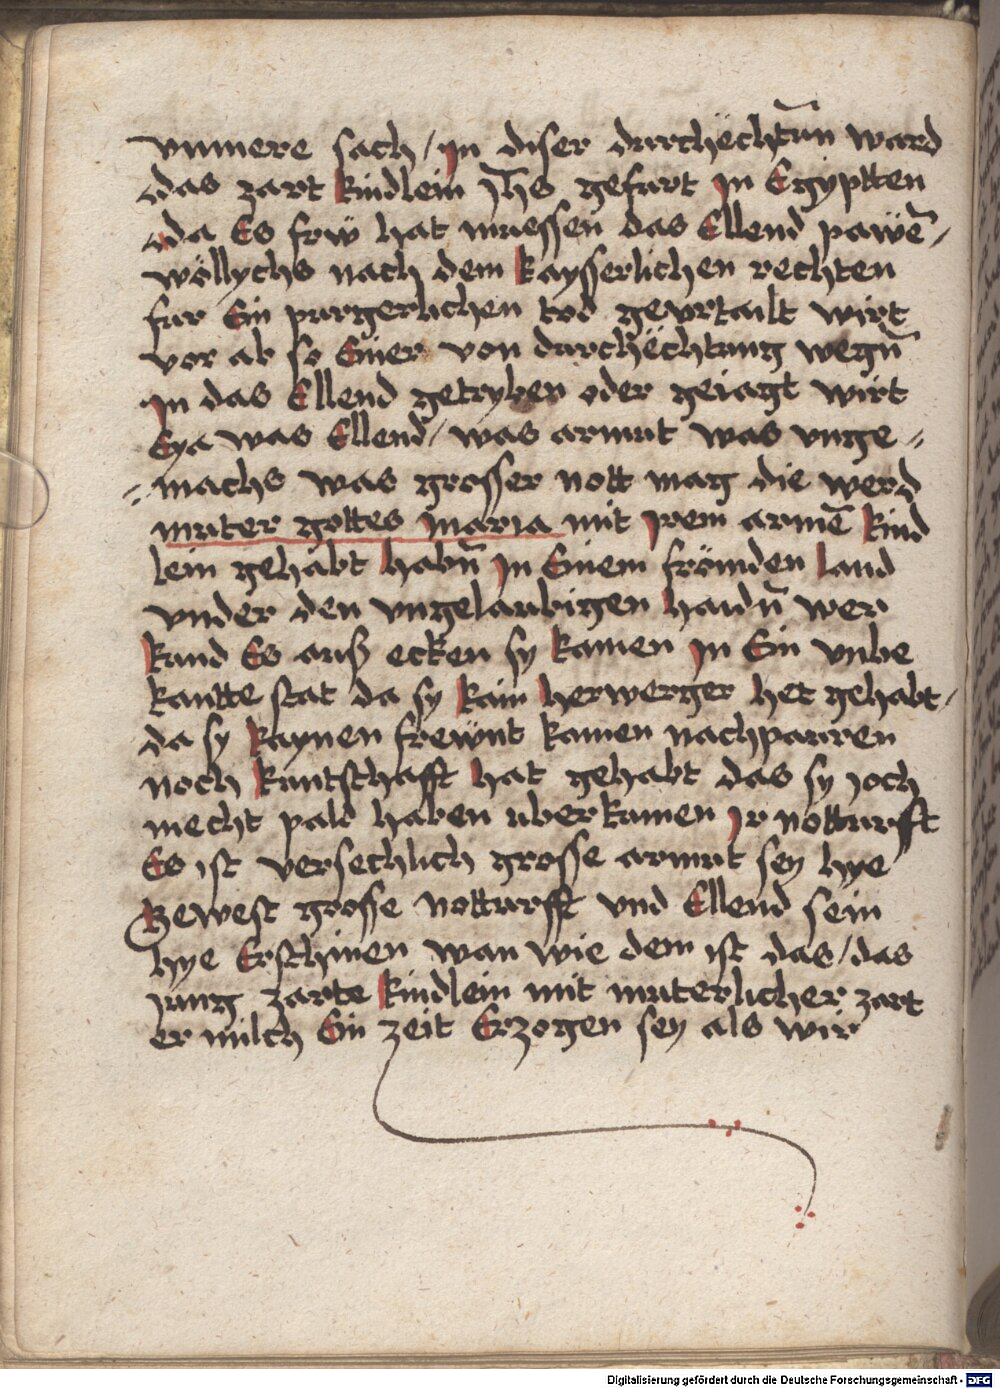 vnmere sach / in diser durchëchtũn ward
das zart kindlein Jh̅s gefurt in Egyptten
da Es frw̎ hat muessen das Ellend paẅē /
wöllychs nach dem kaysserlichen rechten
fur Ein purgerlichen tod geurtailt wirt
vor ab so Einer von durchëchtung wegn̄
in das Ellend getryben oder geiagt wirt
Eya was Ellend / was armut was vnge //
// machs was grosser nott mag die werd
muter gottes maria mit irem armē kind
lein gehabt habn̄ in Einem frömden land
vnder den vngelaubigen haidn̄ wer
kund Es auß ecken sy kamen in Ein vnbe
kantte stat da sy kain herwerger het gehabt /
da sy kaynen frewnt kainen nachpauren
noch kuntschafft hat gehabt das sy ioch
mecht pald haben uberkumen ir notturfft
Es ist versechlich grosse armut sey hye
Gewest grosse notturfft vnd Ellend sein
hye Erschinen wan wie dem ist das / das
iung zarte kindlein mit muterlicher zart
er milch Ein zeit Erzogen sey als wir
Digitalisierung gefördert durch die Deutsche Forschungsgemeinschaft - DFG